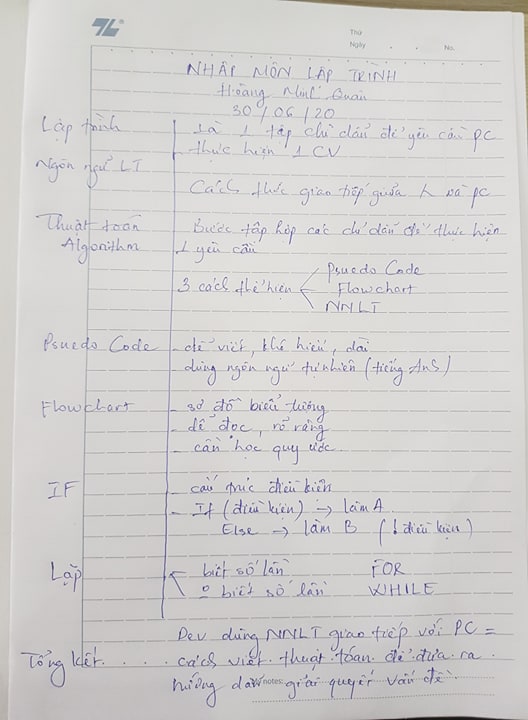 Thứ
Ngày
No.
NHẬP MÔN LẬP TRÌNH
Hoàng Minh Quân
30/06/20
Lập trình
là 1 tập chỉ dẫn để yêu cầu PC
thực hiện 1 CV
Ngôn ngữ LT
Cách thức giao tiếp giữa và PC
Thuật toán
Algorithm
Bước tập hợp các chỉ dẫn để thực hiện
1 yêu cầu
3 cách thể hiện
Psuedo Code
Flowchart
NNLT
Psuedo Code
- dễ viết, khó hiểu, dài
- dùng ngôn ngữ tự nhiên (tiếng Anh)
Flowchart
- sơ đồ biểu tượng
- dễ đọc, rõ ràng
- cần học quy ước
IF
- cấu trúc điều kiện
- If (điều kiện) → làm A
Else → làm B (! điều kiện)
Lặp
biết số lần FOR
0 biết số lần WHILE
Tổng kết
Dev dùng NNLT giao tiếp với PC =
cách viết thuật toán để đưa ra
hướng dẫn giải quyết vấn đề
notes: